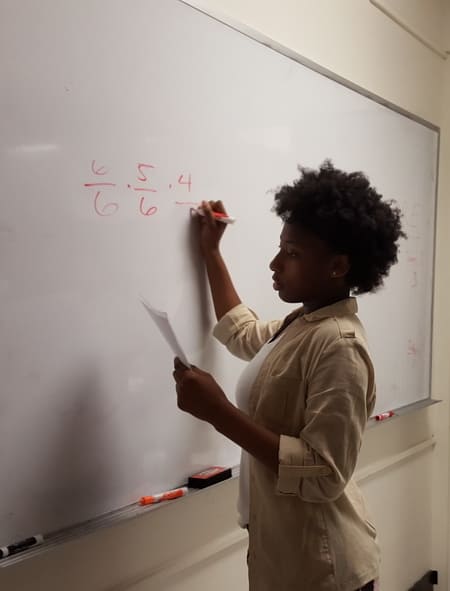 6/6 · 5/6 · 4/